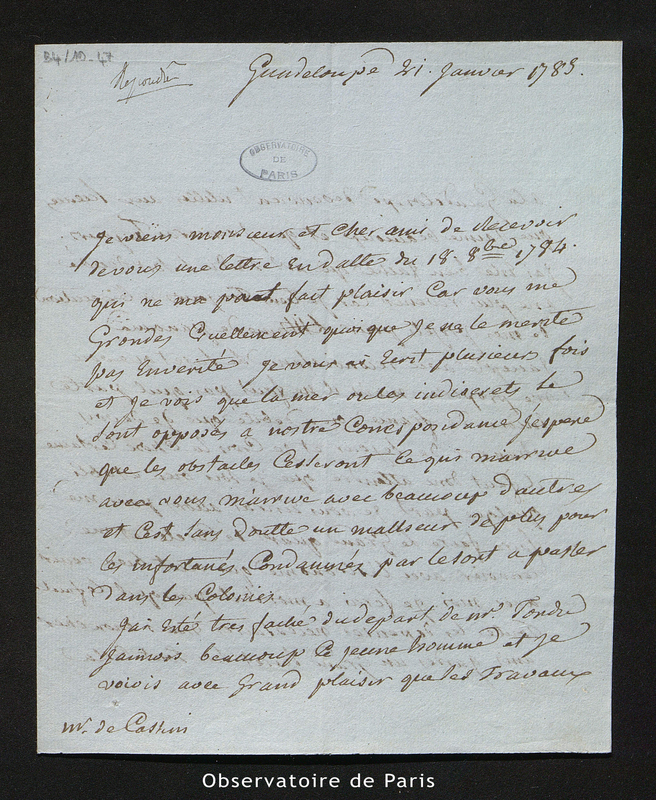 B4/10-47
Repondu
Guadeloupe 21. Janvier 1785.
OBSERVATOIRE
DE
PARIS
Jeviens monsieur et cher ami de Recevoir
devous une lettre En datte du 18. 8bre 1784.
qui ne ma point fait plaisir Car vous me
Grondés Cruellement quoique Je ne le merite
pas Enverité Je vous ai Ecrit plusieurs fois
et Je vois que la mer ou les indiscrets Se
Sont opposés a nostre Correspondance J'espere
que les obstacles Cesseront Ce qui marrive
avec vous marrive avec beaucoup d'autres
et C'est Sans Doutte un malheur de plus pour
les infortunés Condamnés par le Sort a passer
Dans les Colonies
Jai Eté tres faché du depart de mr. Tondu
Jaimois beaucoup Ce jeune homme et Je
voiois avec Grand plaisir que Ses Travaux
mr. de Cassini
Observatoire de Paris